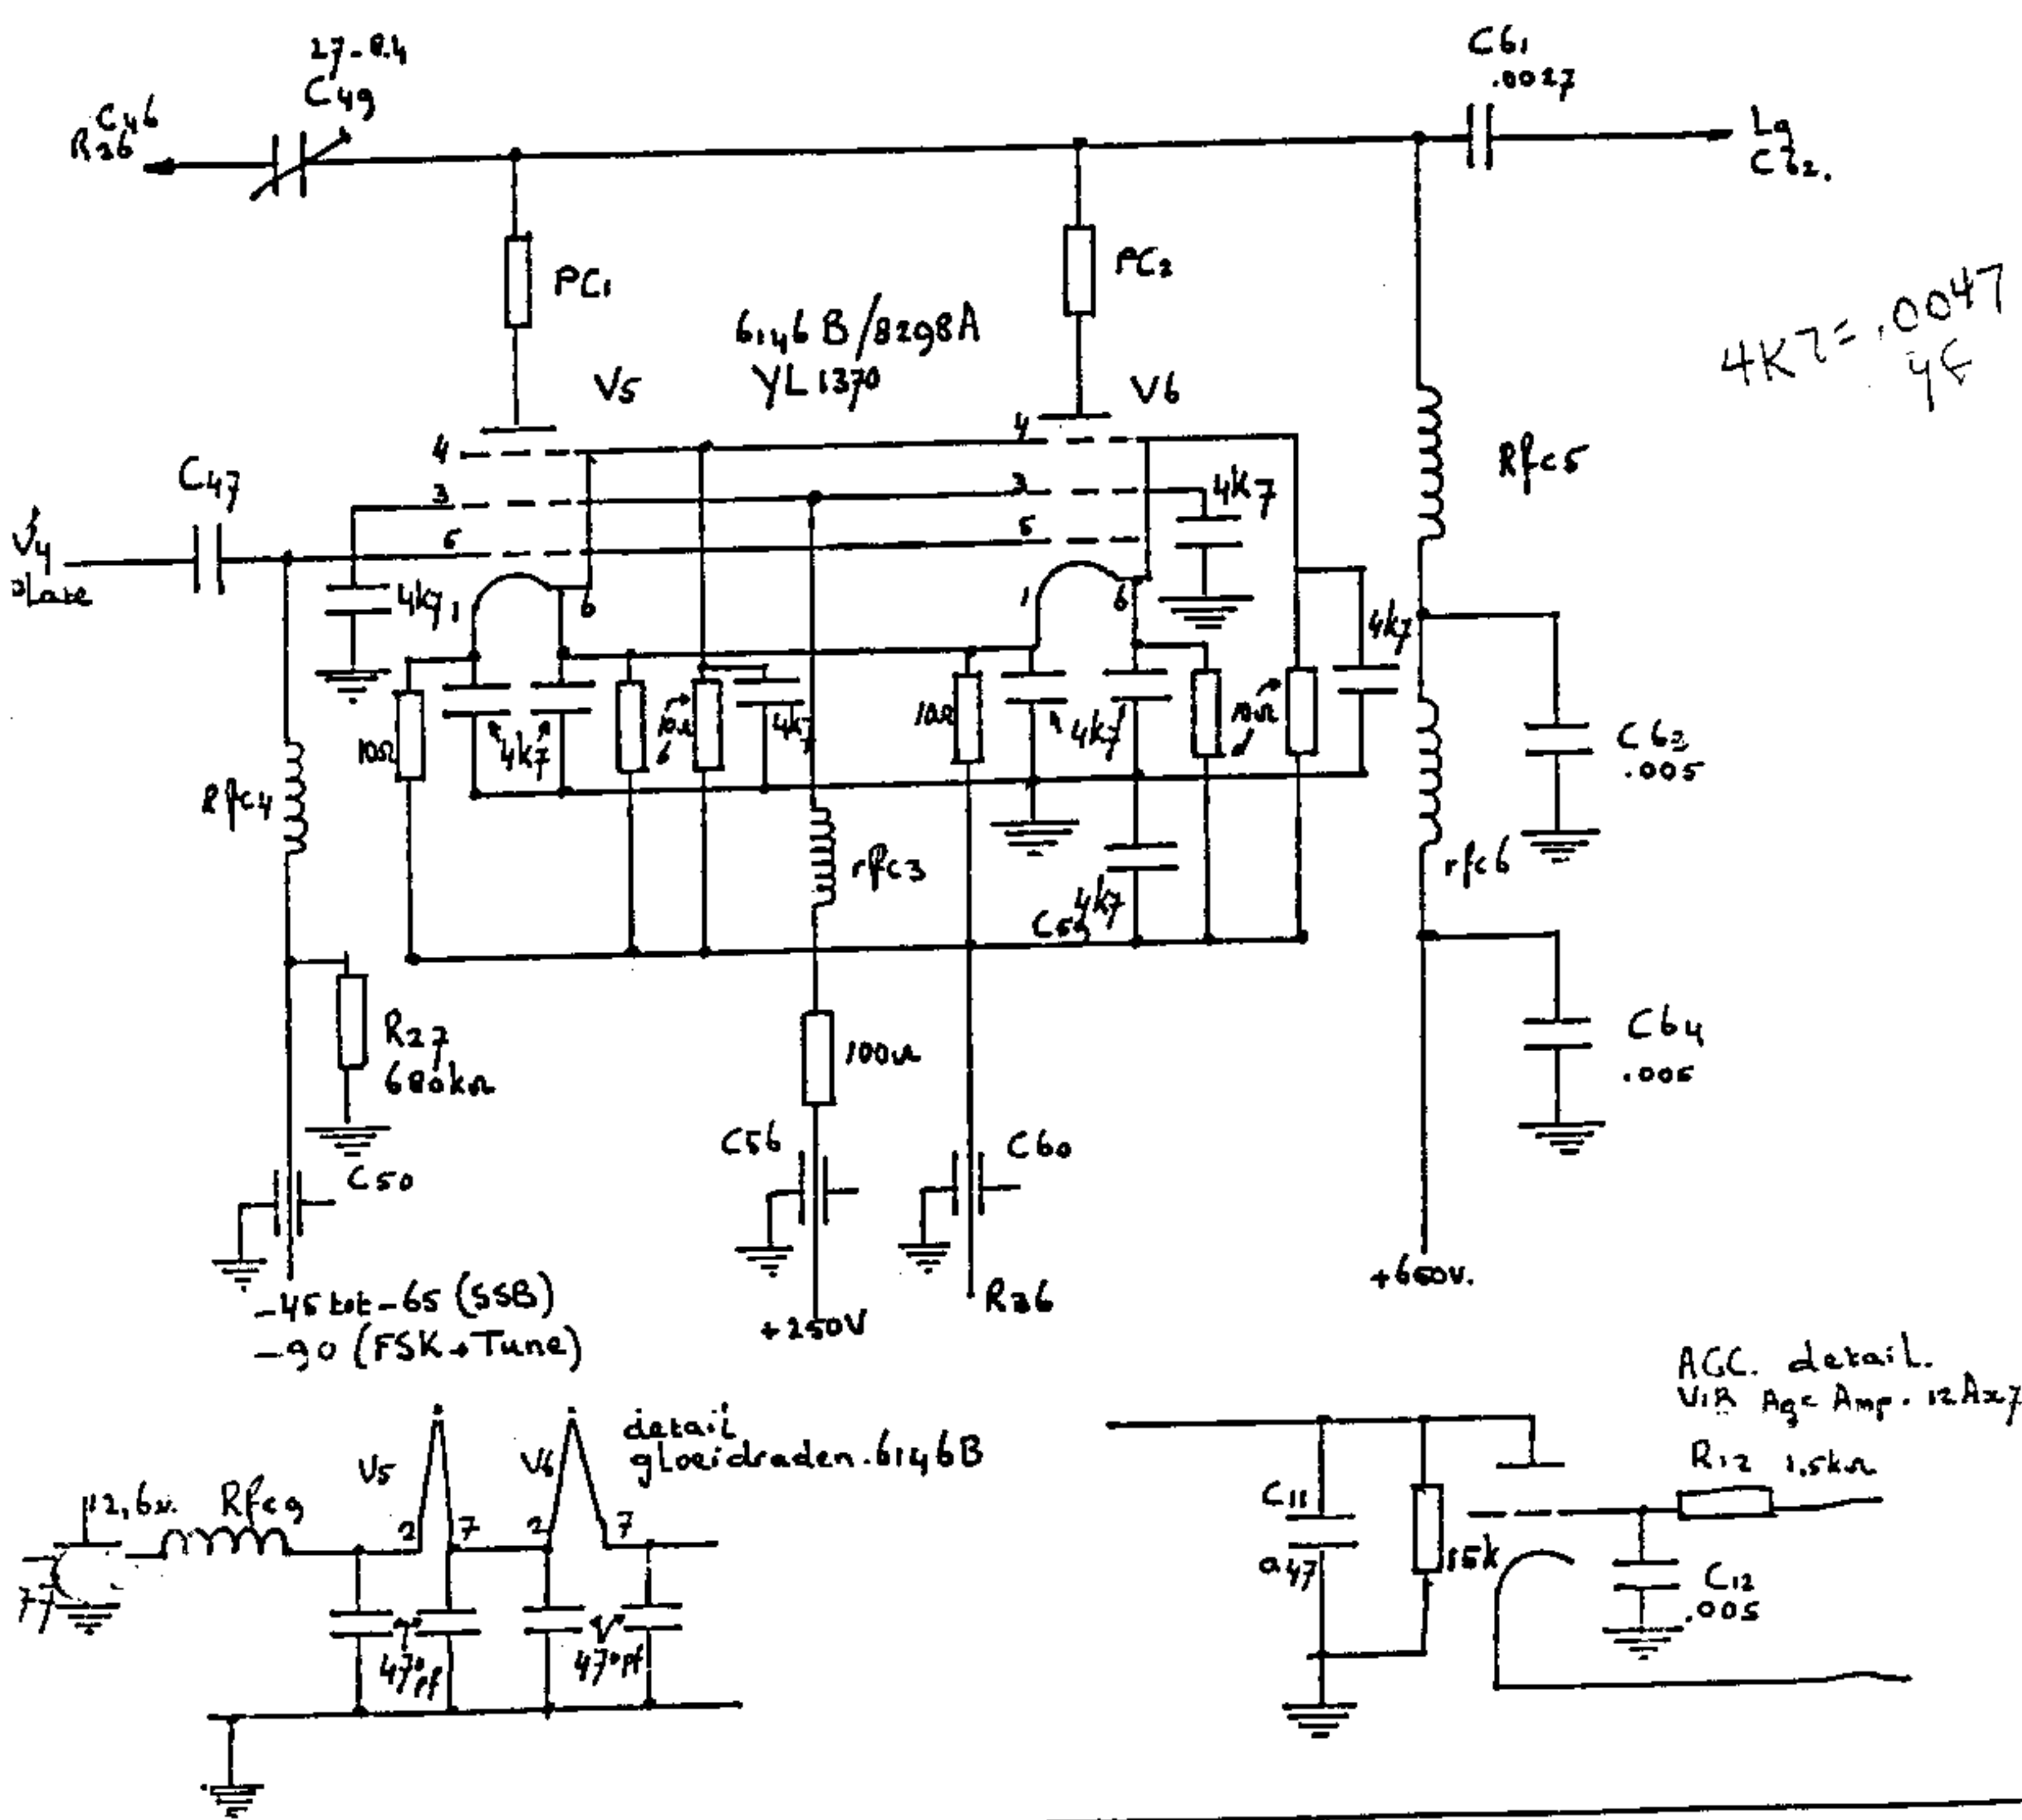 27-8.4
C49
C46
R26
C61
.0027
L9
C62.
PC1
PC2
6146B/8298A
YL1370
V5
V6
4K7=.0047
C47
4
4
3
3
4K7
5
5
V4
plate
Rfc5
4k7
1
6
1
6
4k7
10Ω
4k7
10Ω
4k7
10Ω
4k7
10Ω
C63
.005
Rfc4
rfc3
4k7
C59
rfc6
R27
680kΩ
100Ω
C64
.005
C50
C56
C60
-45 tot -65 (SSB)
-90 (FSK+Tune)
+250V
R36
+660V.
AGC. detail.
V1B Agc Amp. 12Ax7
R12 1,5kΩ
detail
gloeidraden. 6146B
V5
V6
12,6v.
Rfc9
2
7
2
7
470pf
470pf
C11
0,47
15k
C12
.005